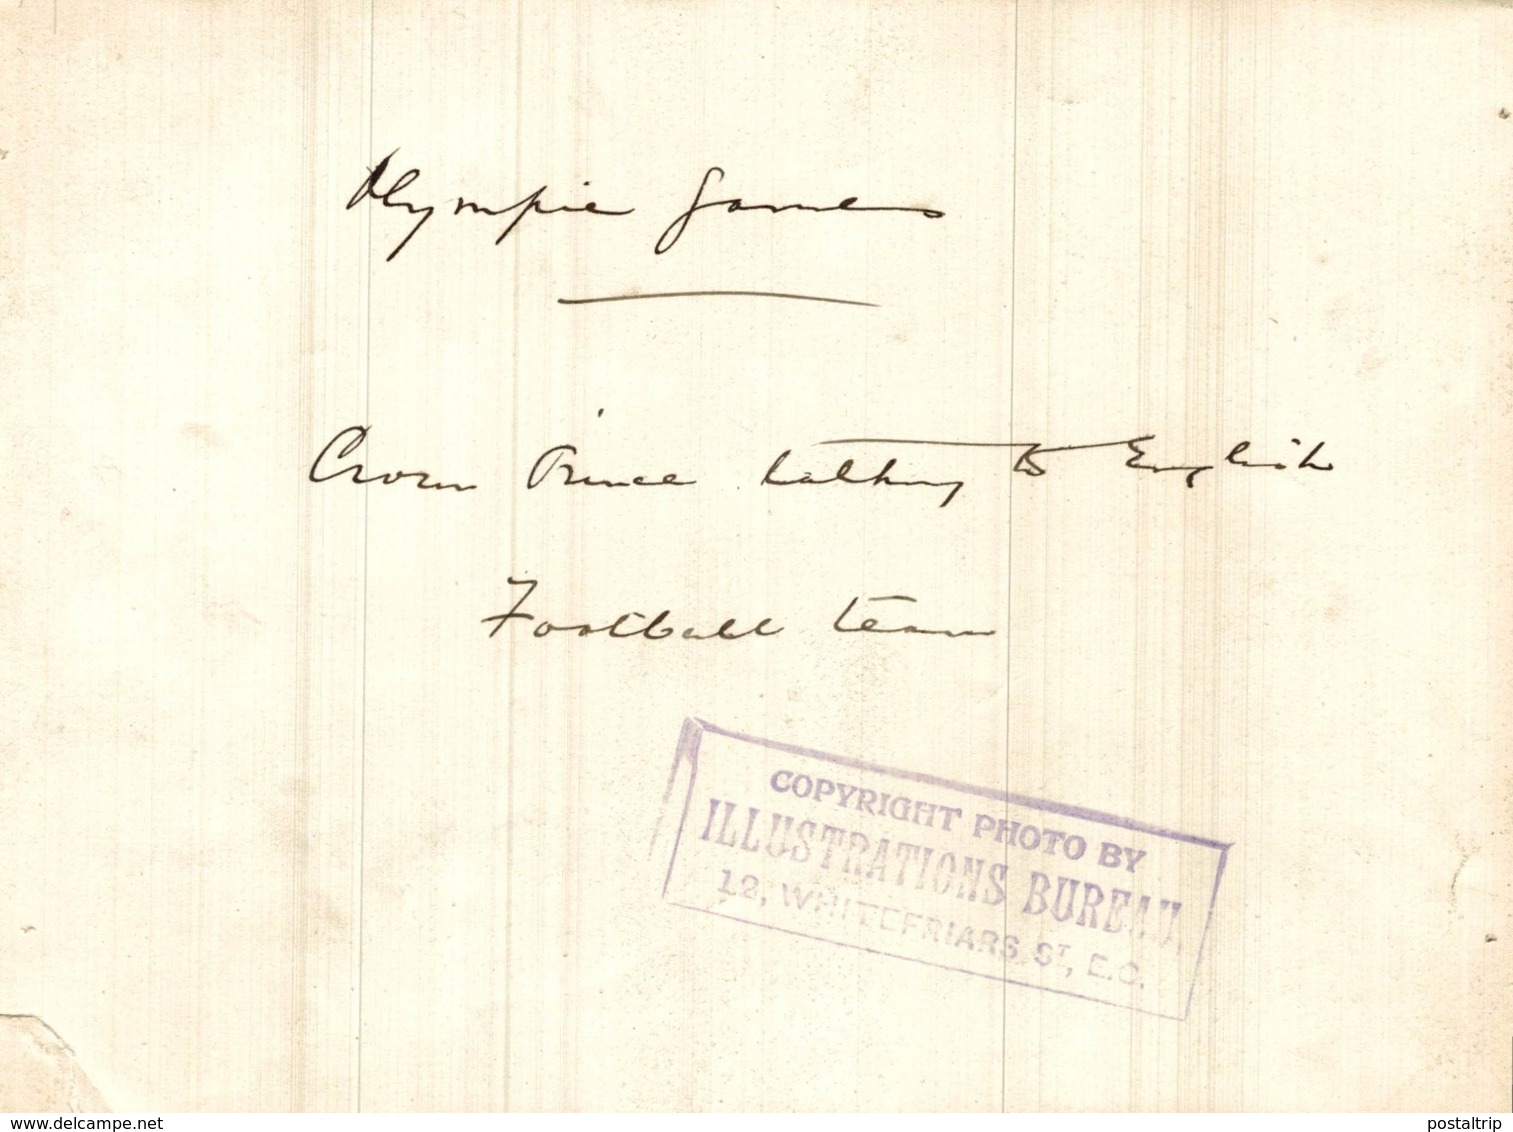 Olympic Games
Crown Prince talking to English
Football team
COPYRIGHT PHOTO BY
ILLUSTRATIONS BUREAU,
12, WHITEFRIARS ST, E.C.
delcampe.net
postaltrip